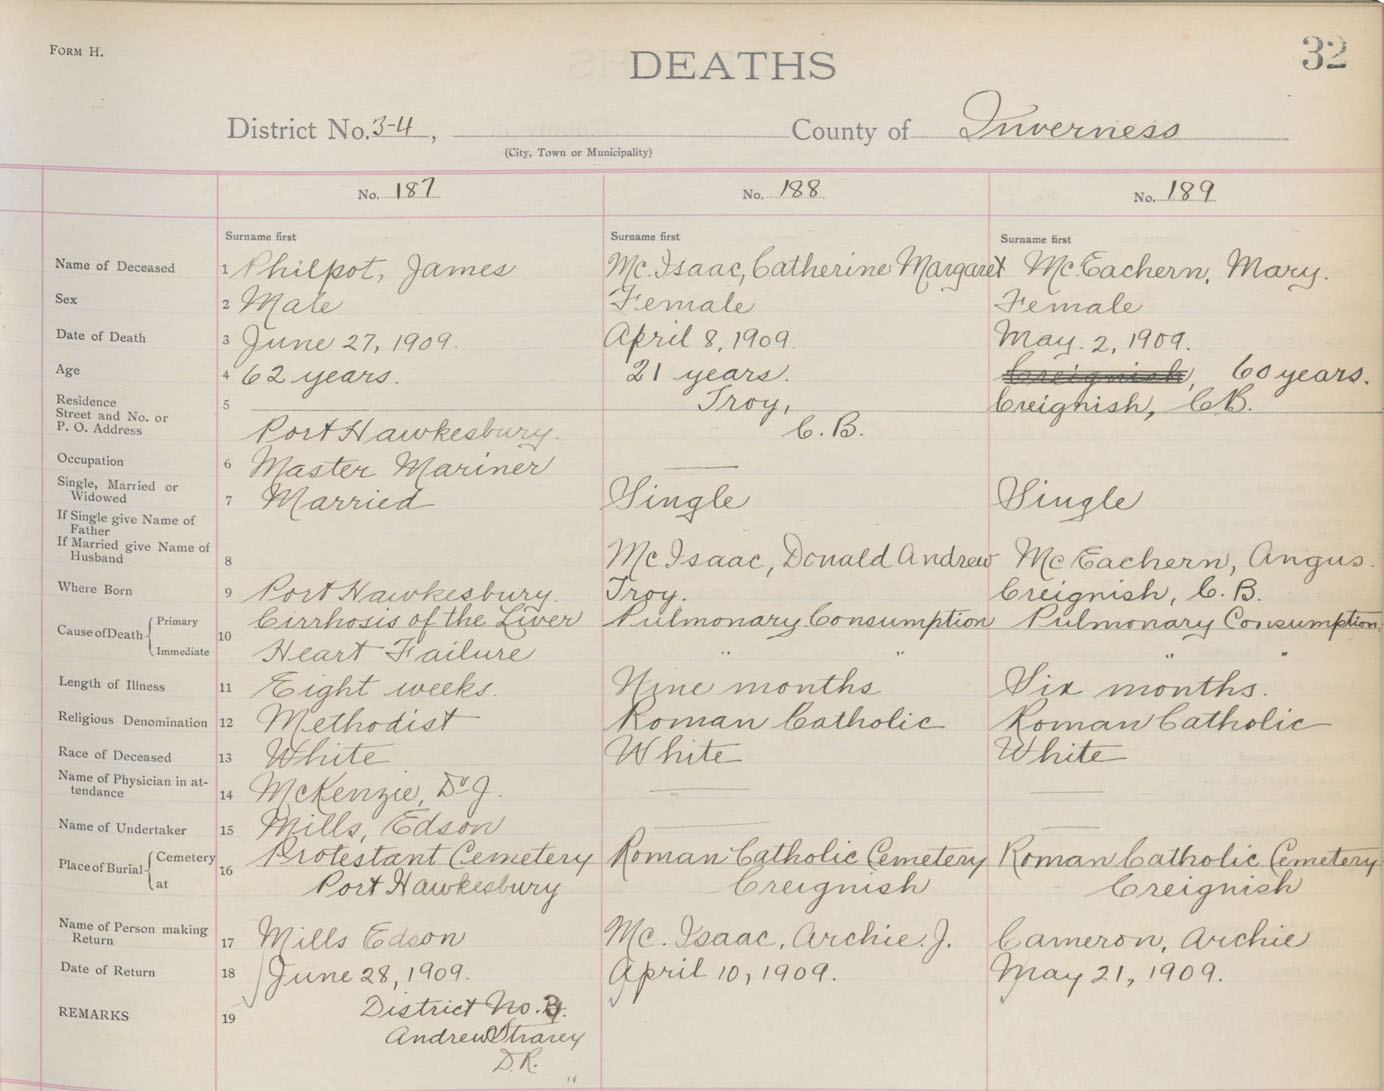 FORM H.
DEATHS
32
District No. 3-4, County of Inverness
(City, Town or Municipality)
No. 187 No. 188 No. 189
Surname first Surname first Surname first
Name of Deceased 1 Philpot, James Mc. Isaac, Catherine Margaret Mc. Eachern, Mary.
Sex 2 Male Female Female
Date of Death 3 June 27, 1909. April 8, 1909. May. 2, 1909.
Age 4 62 years. 21 years. Creignish, 60 years.
Residence
Street and No. or
P. O. Address
5 Troy, Creignish, C.B.
Port Hawkesbury. C. B.
Occupation 6 Master Mariner
Single, Married or
Widowed
7 Married Single Single
If Single give Name of
Father
If Married give Name of
Husband
8 Mc Isaac, Donald Andrew Mc Eachern, Angus.
Where Born 9 Port Hawkesbury. Troy. Creignish, C. B.
Cause of Death Primary Cirrhosis of the Liver Pulmonary Consumption Pulmonary Consumption
10
Immediate Heart Failure " " " "
Length of Illness 11 Eight weeks. Nine months Six months.
Religious Denomination 12 Methodist Roman Catholic Roman Catholic
Race of Deceased 13 White White White
Name of Physician in at-
tendance
14 McKenzie, Dr J.
Name of Undertaker 15 Mills, Edson
Place of Burial Cemetery Protestant Cemetery Roman Catholic Cemetery Roman Catholic Cemetery
16
at Port Hawkesbury Creignish Creignish
Name of Person making
Return
17 Mills Edson Mc. Isaac, Archie. J. Cameron, Archie
Date of Return 18 June 28, 1909. April 10, 1909. May 21, 1909.
REMARKS 19 District No.
Andrew
D.R.
"